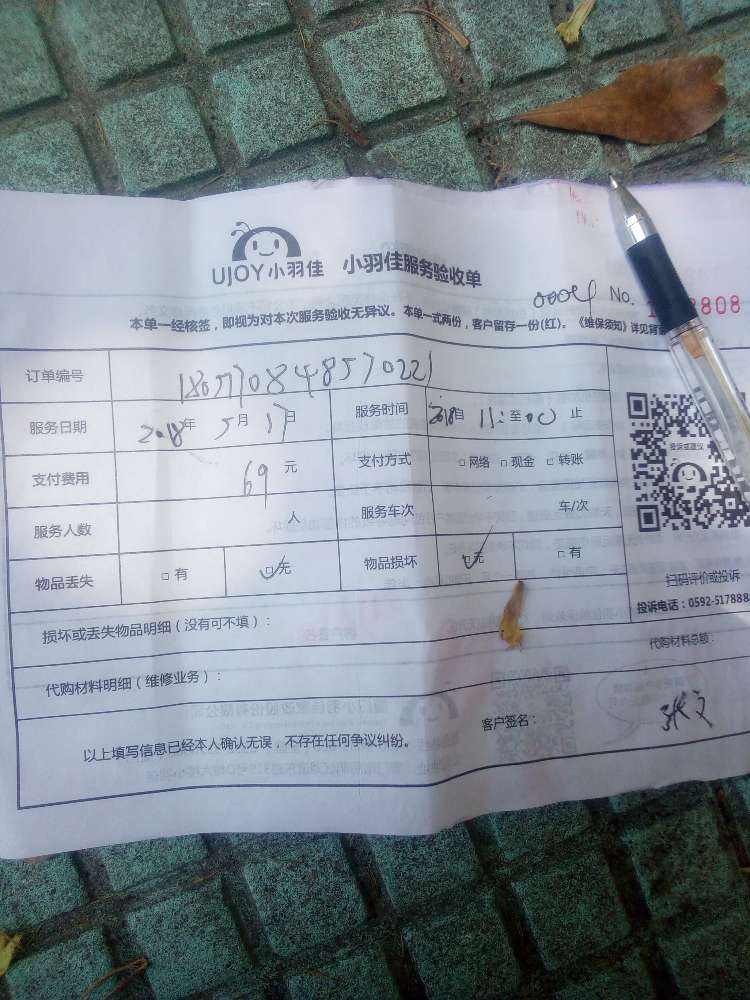 UJOY小羽佳 小羽佳服务验收单
No. 808
本单一经核签，即视为对本次服务验收无异议。本单一式两份，客户留存一份(红)。《维保须知》详见背
订单编号
服务日期 2018年 5月 17日 服务时间 自 11: 至 00 止
支付费用 69 元 支付方式 □网络 □现金 □转账
投诉或建议
服务人数 人 服务车次 车/次
物品丢失 □有 ☑无 物品损坏 ☑无 □有
扫码评价或投诉
投诉电话：0592-517888
损坏或丢失物品明细（没有可不填）：
代购材料明细（维修业务）： 代购材料总额：
以上填写信息已经本人确认无误，不存在任何争议纠纷。 客户签名： 张文